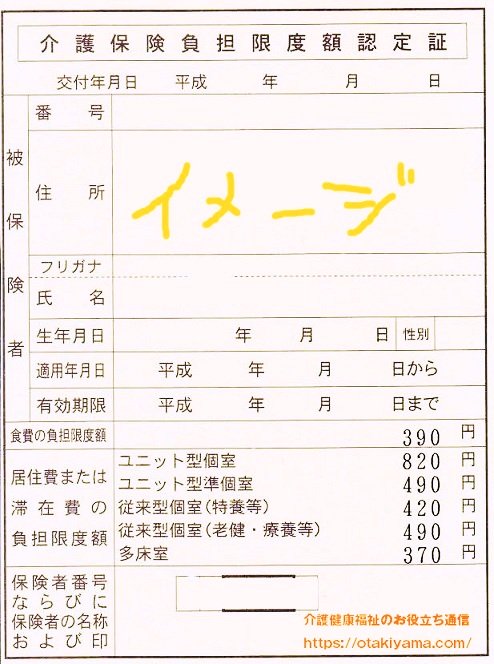 介護保険負担限度額認定証
交付年月日 平成 年 月 日
被保険者
番号
住所
イメージ
フリガナ
氏名
生年月日 年 月 日 性別
適用年月日 平成 年 月 日から
有効期限 平成 年 月 日まで
食費の負担限度額 390 円
居住費または
滞在費の
負担限度額
ユニット型個室 820 円
ユニット型準個室 490 円
従来型個室(特養等) 420 円
従来型個室(老健・療養等) 490 円
多床室 370 円
保険者番号
ならびに
保険者の名称
および印
介護健康福祉のお役立ち通信
https://otakiyama.com/